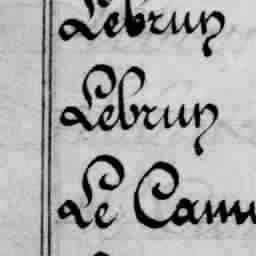 Lebrun
Lebrun
Le